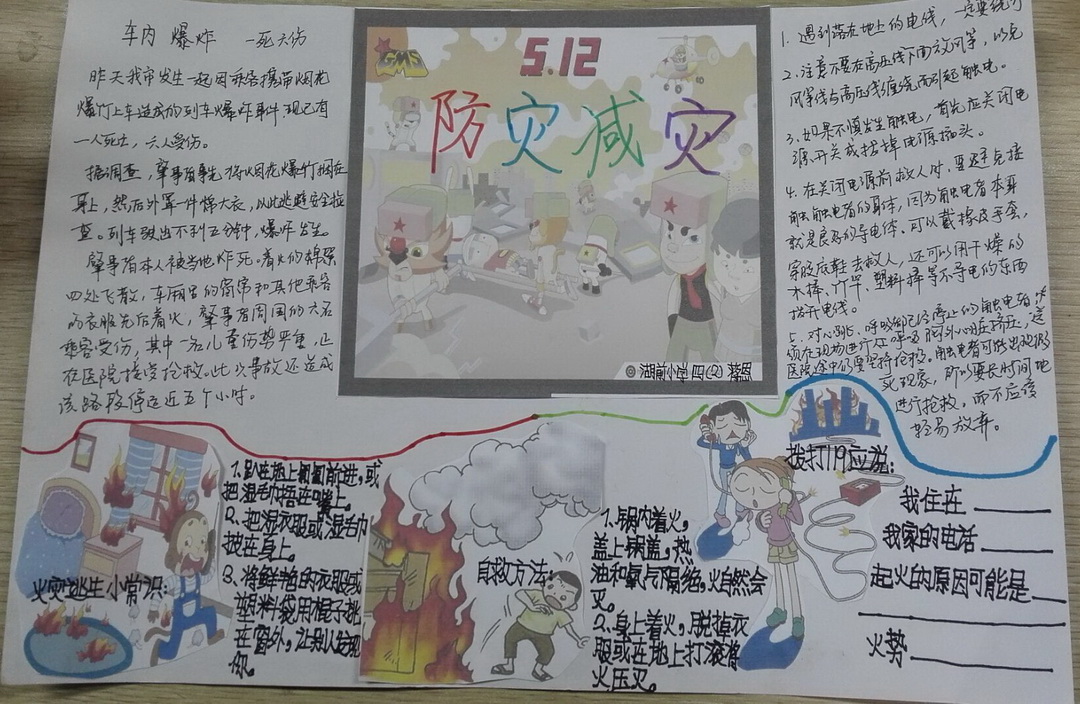 车内 爆炸 一死六伤
昨天我市发生一起因乘客携带烟花
爆竹上车造成的列车爆炸事件现已有
一人死亡，六人受伤。
据调查，肇事者事先将烟花爆竹捆在
身上，然后外罩一件棉大衣，以此逃避安全检
查。列车驶出不到五分钟，爆炸发生。
肇事者本人被当地炸死。着火的棉絮
四处飞散，车厢里的窗帘和其他乘客
的衣服先后着火，肇事者周围的六名
乘客受伤，其中一名儿童伤势严重，正
在医院接受抢救。此次事故还造成
该路段停运近五个小时。
GMS
5.12
防灾减灾
1. 遇到落在地上的电线，一定要绕行
2. 注意不要在高压线下面放风筝，以免
风筝线与高压线缠绕而引起触电。
3. 如果不慎发生触电，首先应关闭电
源开关或拔掉电源插头。
4. 在关闭电源前救人时，要避免接
触触电者的身体，因为触电者本身
就是良好的导电体。可以戴橡皮手套，
穿胶底鞋去救人，还可以用干燥的
木棒、竹竿、塑料棒等不导电的东西
拨开电线。
5. 对心跳、呼吸都已经停止的触电者
须在现场进行人工呼吸和胸外心脏挤压，送
医院途中仍要坚持抢救。触电者可能出现假
死现象，所以要长时间地
进行抢救，而不应该
轻易放弃。
火灾逃生小常识：
1、趴在地上匍匐前进，或
把湿毛巾捂在嘴上。
2、把湿衣服或湿毛巾
披在身上。
3、将鲜艳的衣服或
塑料袋用棍子挑
在窗外，让别人发现
你。
自救方法：
1、锅内着火，
盖上锅盖，热
油和氧气隔绝，火自然会
灭。
2、身上着火，脱掉衣
服或在地上打滚将
火压灭。
拨打119应说：
我住在
我家的电话
起火的原因可能是
火势